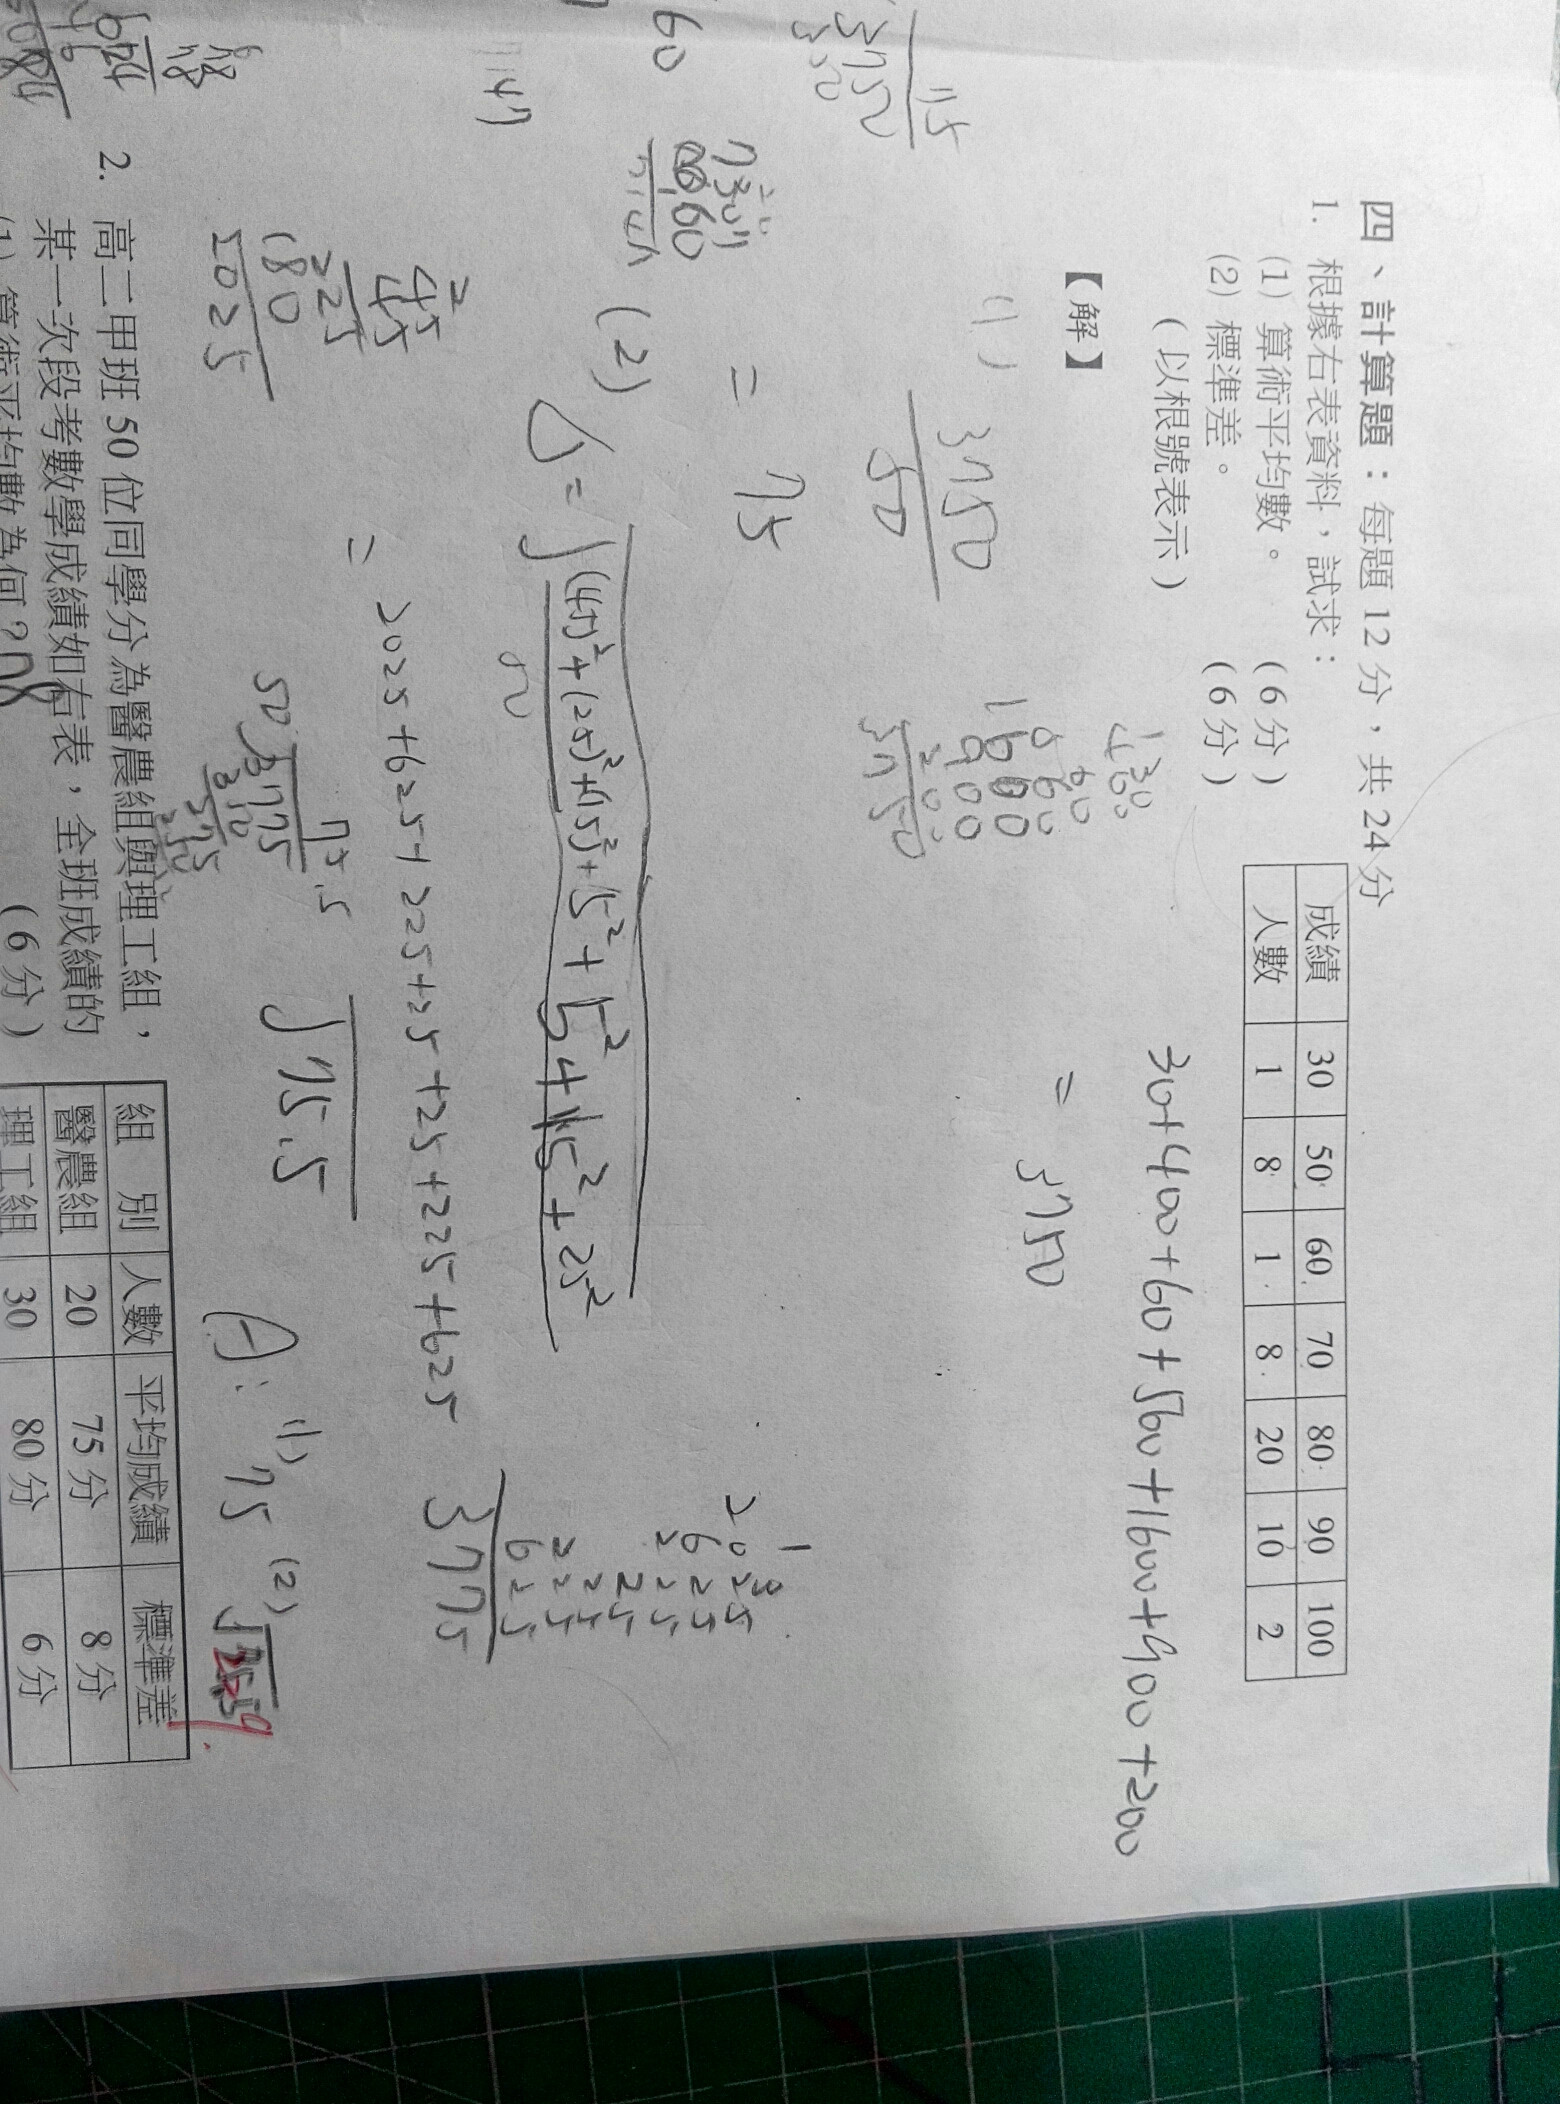 四、計算題：每題 12 分，共 24 分
1. 根據右表資料，試求：
(1) 算術平均數。 (6 分)
(2) 標準差。 (6 分)
(以根號表示)
成績 30 50 60 70 80 90 100
人數 1 8 1 8 20 10 2
【解】
30+400+60+560+1600+900+200
= 3750
(1) 3750
50
= 75
(2)
σ = √(45)²+(25)²+15²+5²+5²+15²+25²
50
= 2025+625+225+25+25+225+625
√75.5
3775
75.5
50 3775
45
45
225
180
2025
A: (1) 75 (2)
2. 高二甲班 50 位同學分為醫農組與理工組，
某一次段考數學成績如右表，全班成績的
(1) 算術平均數為何？ (6 分)
組 別 人數 平均成績 標準差
醫農組 20 75 分 8 分
理工組 30 80 分 6 分